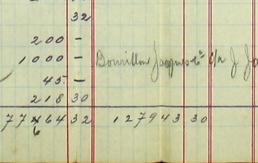 32
200 –
1000 – Bouillon Jacques & Co c/a J. Ja
45 –
218 30
77464 32 127943 30